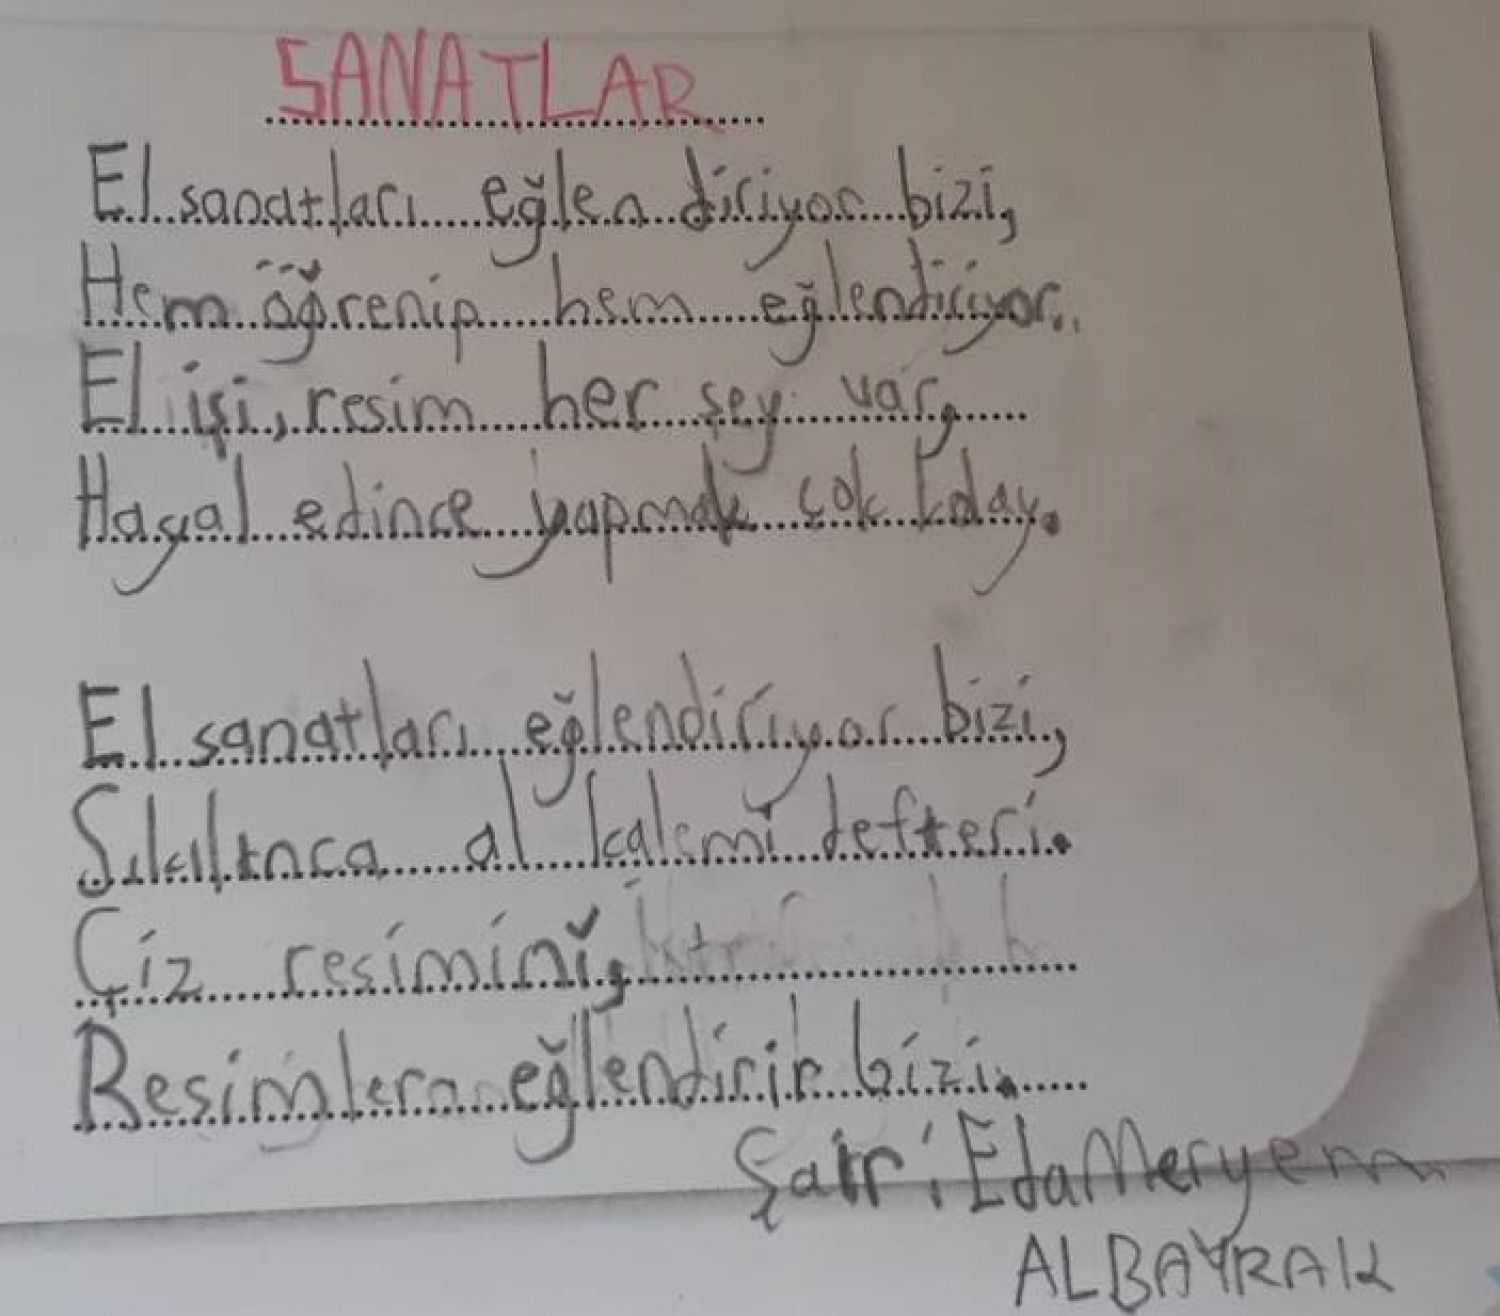 SANATLAR
El sanatları eğlendiriyor bizi,
Hem öğrenip hem eğlendiriyor.
El işi, resim her şey var,
Hayal edince yapmak çok kolay.
El sanatları eğlendiriyor bizi,
Sıkılınca al kalemi defteri.
Çiz resimini,
Resimler eğlendirir bizi.
Şair: Eda Meryem
ALBAYRAK